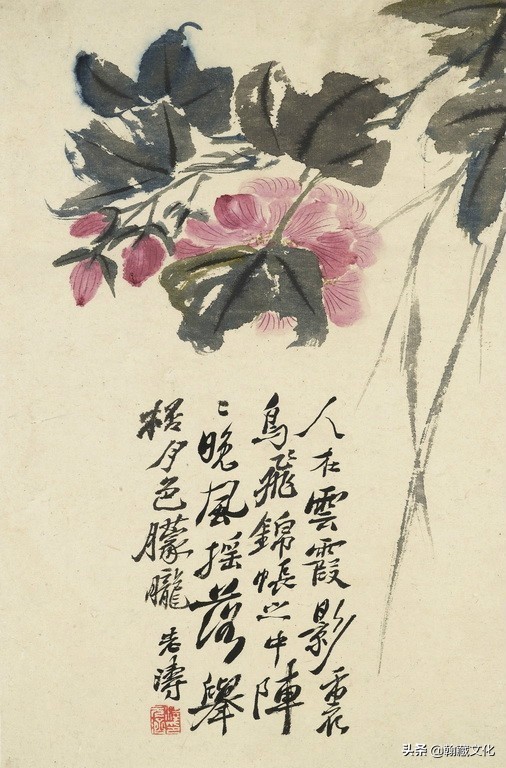 人在雲霞影裏
鳥飛錦帳之中陣
〻晚風搖落舉
橈月色朦朧
老濤
头条 @翰藏文化